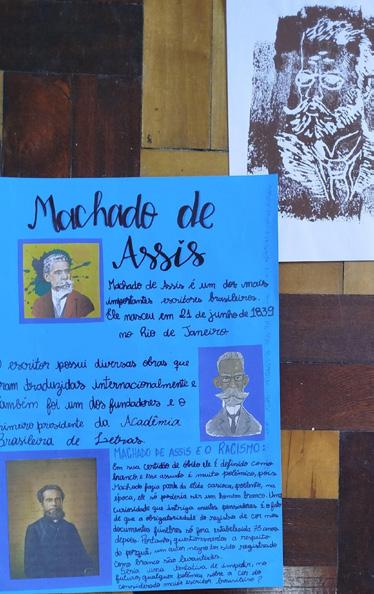 Machado de
Assis
Machado de Assis é um dos mais
importantes escritores brasileiros.
Ele nasceu em 21 de junho de 1839
no Rio de Janeiro
O escritor possui diversas obras que
foram traduzidas internacionalmente e
também foi um dos fundadores e o
primeiro presidente da Academia
Brasileira de Letras.
MACHADO DE ASSIS E O RACISMO:
Em sua certidão de óbito ele é definido como
branco e esse assunto é muito polêmico, pois
Machado fazia parte da elite carioca, portanto, na
época, ele só poderia ser um homem branco. Uma
curiosidade que intriga muitos pensadores é o fato
de que a obrigatoriedade do registro de cor nos
documentos fúnebres só fora estabelecida 75 anos
depois. Portanto, questionamentos a respeito
do porquê, um autor negro ter sido registrado
como branco são levantados.
Seria uma tentativa de impedir, no
futuro, qualquer polêmica sobre a cor do
considerado mais escritor brasileiro?